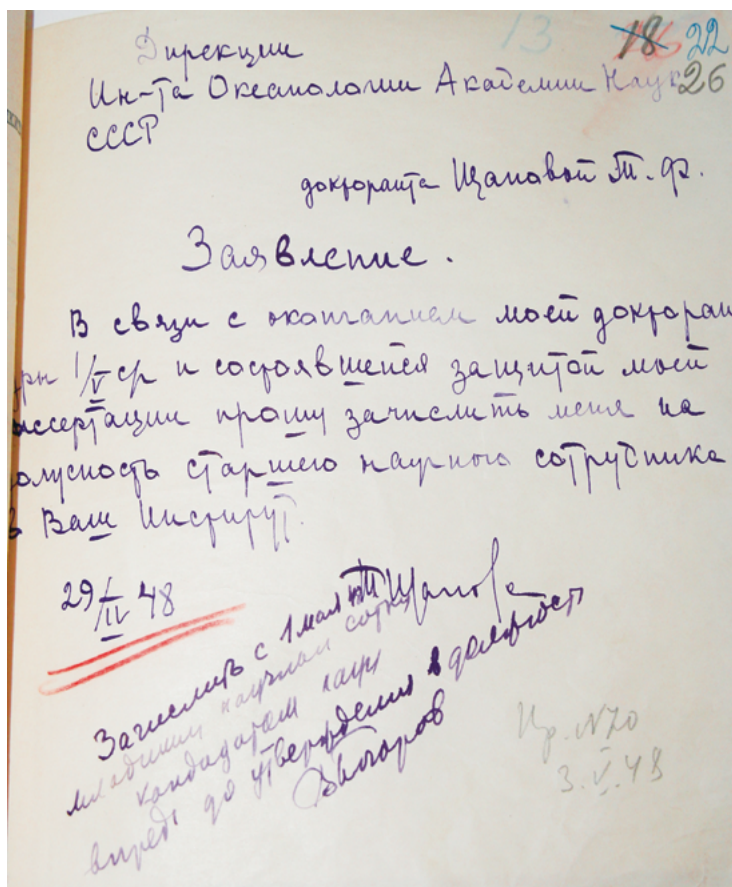 13 18 22
26
Дирекции
Ин-та Океанологии Академии Наук
СССР
докторанта Щаповой Т. Ф.
Заявление.
В связи с окончанием моей докторан
уры 1/V ср и состоявшейся защитой моей
иссертации прошу зачислить меня на
олжность старшего научного сотрудника
в Ваш Институт.
29/IV 48
Т Щапова
Зачислить с 1 мая
младшим научным сотр
кандидатом наук
впредь до утверждения в должност
Богоров
Пр. N70
3.V.48